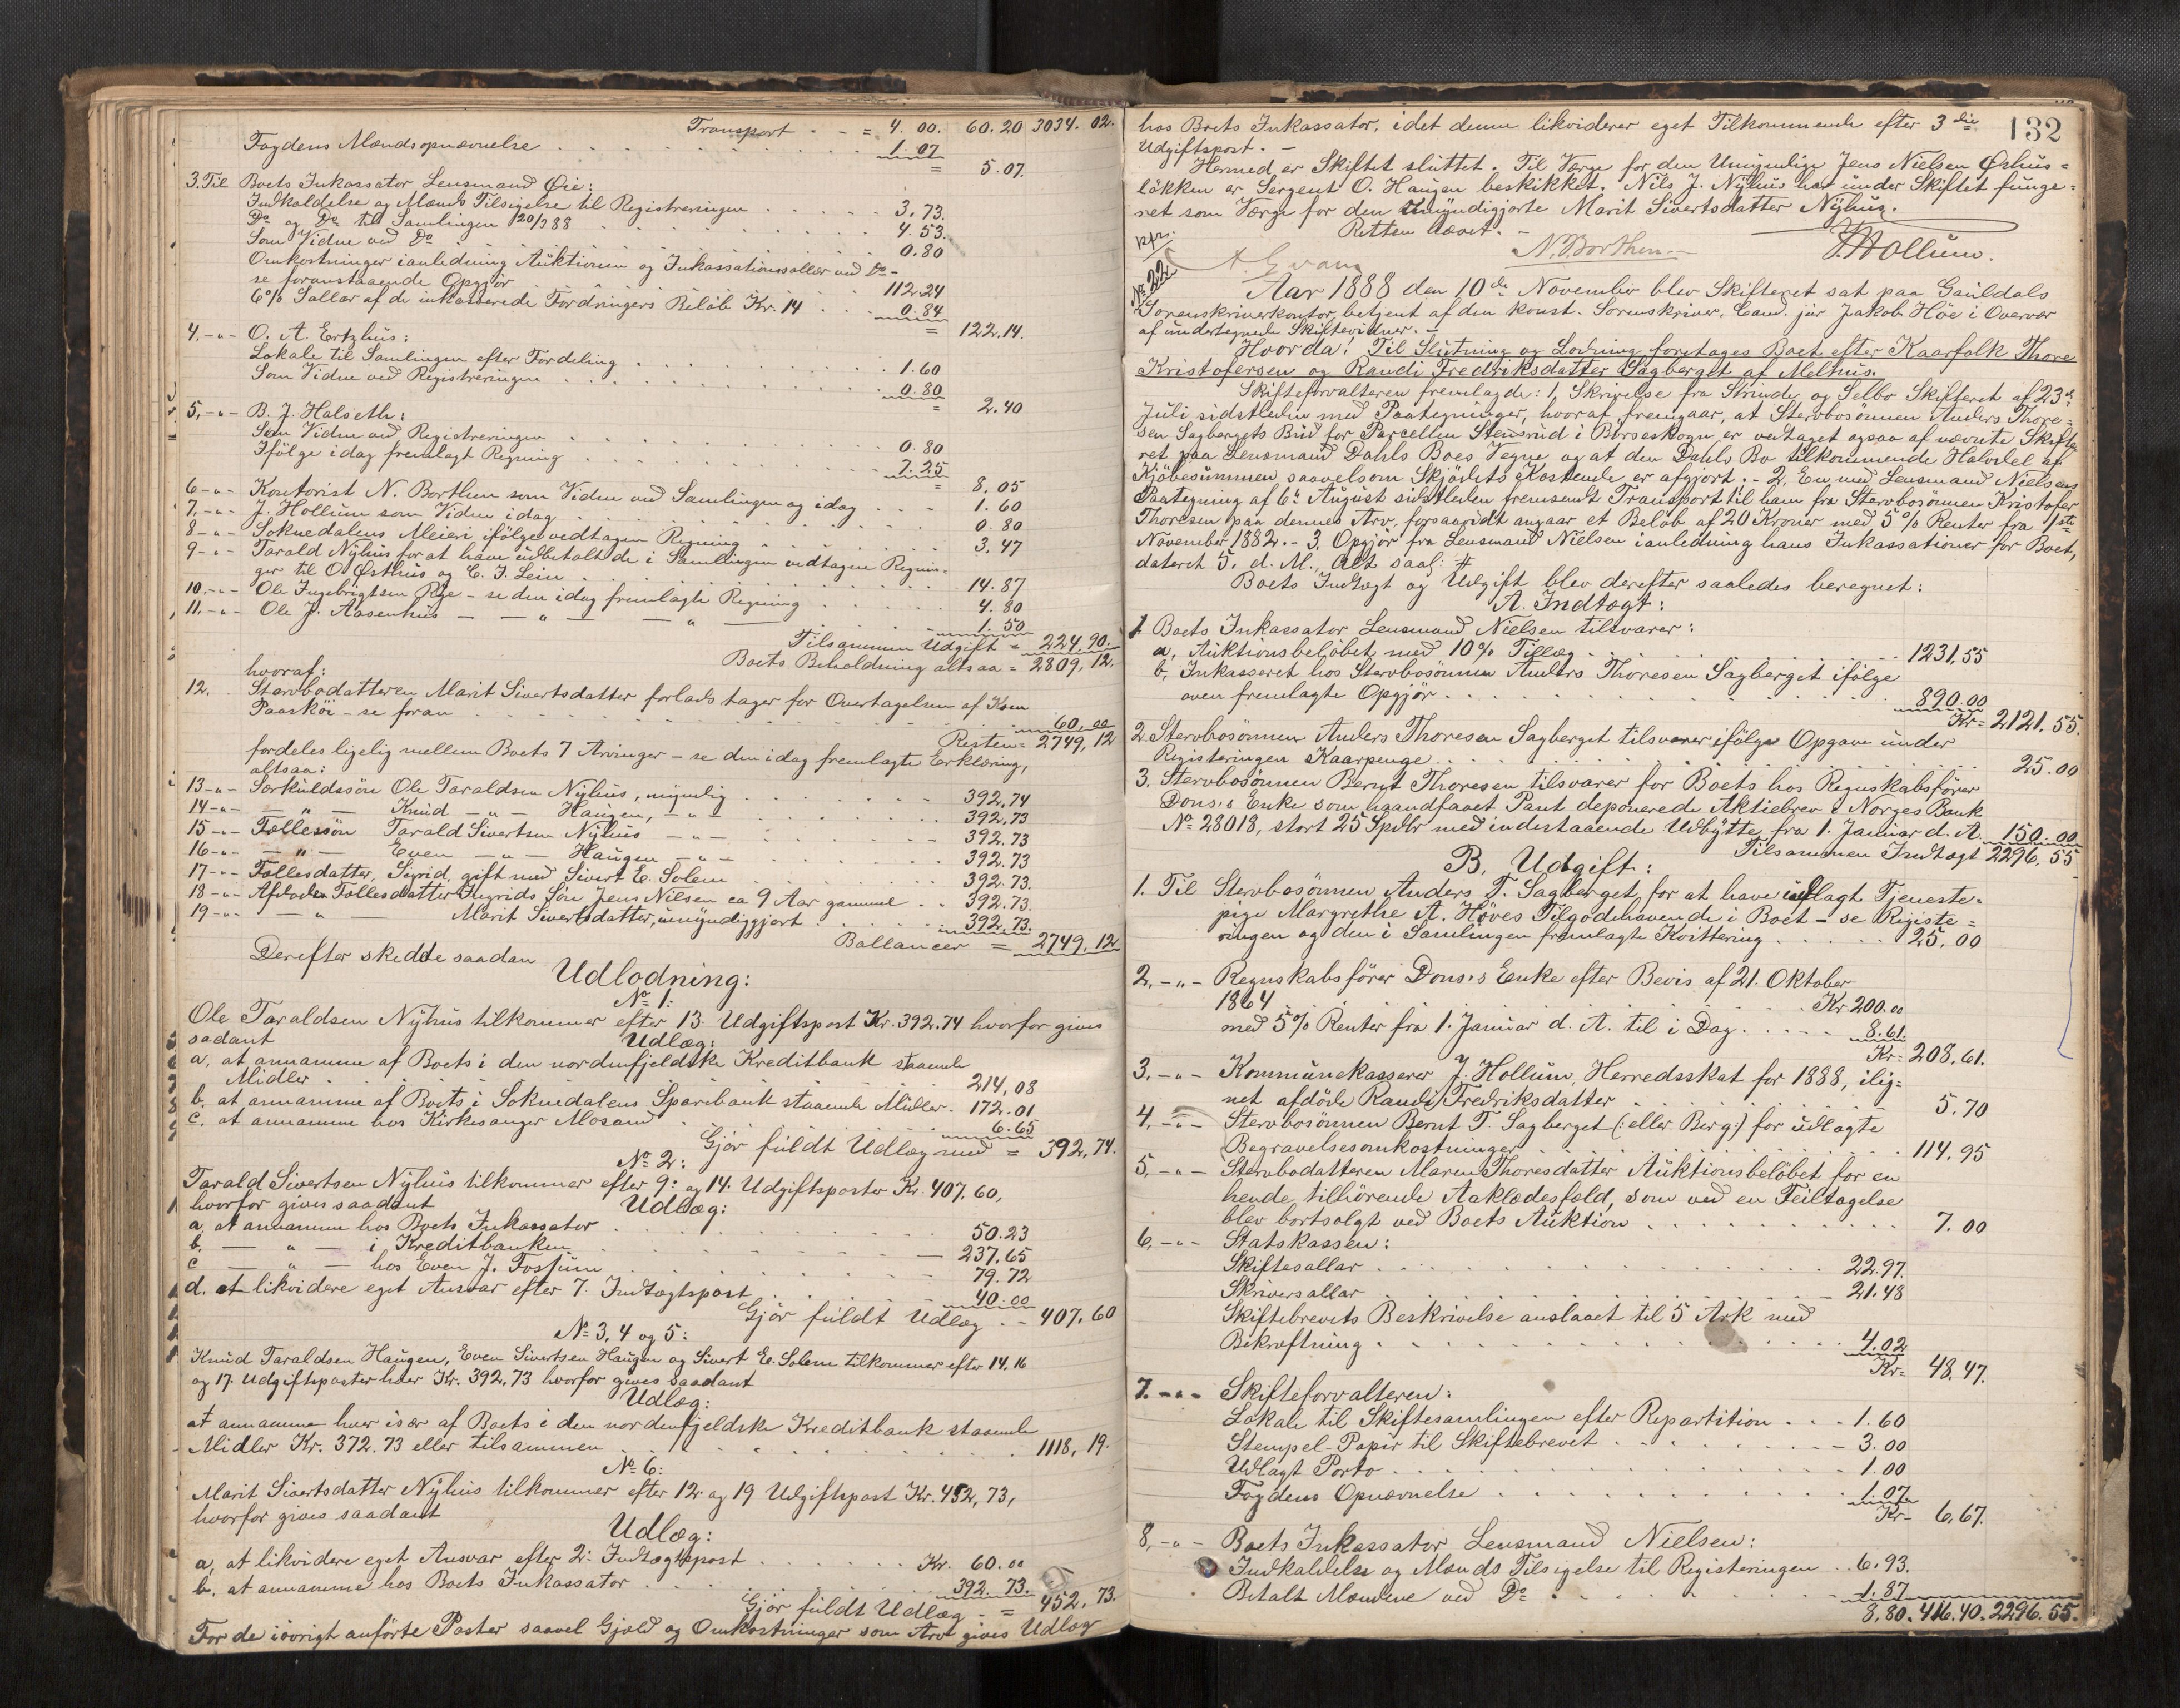 Transport - - = 4.00. 60.20 3034.02.
Fogdens Mændsopnævnelse . . . 1.07
= 5.07.
3. Til Boets Inkassator Lensmand Øie:
Indkaldelse og Mænds Tilsigelse til Registreringen . . . 3,73.
Do og Do til Samlingen 20/3 88 . . . 4.53.
Som Vidne ved Do . . . 0.80
Omkostninger ianledning Auktionen og Inkassationssallær ved Do -
se foranstaaende Opgjör . . . 112.24
6% Sallar af de inkasserede Fordringers Belöb Kr. 14 . . . 0.84
= 122.14.
4, -"- O. A. Ertzhus:
Lokale til Samlingen efter Fordeling . . . 1.60
Som Vidne ved Registreringen . . . 0.80
= 2.40
5, -"- B. J. Halseth:
Som Vidne ved Registreringen . . . 0.80
Ifölge idag fremlagt Regning . . . 7.25
= 8.05
6 -"- Kontorist N. Borthen som Vidne ved Samlingen og idag . . . 1.60
7, -"- J. Hollum som Vidne idag . . . 0.80
8 -"- Soknedalens Meieri ifölge vedtagen Regning . . . 3.47
9 -"- Tarald Nÿhus for at have udbetalt de i Samlingen vedtagne Regnin-
ger til O. Østhus og E. J. Lein . . . 14.87
10. -"- Ole Ingebrigtsen Rye - se den idag fremlagte Regning . . . 4.80
11. -"- Ole J. Aasenhus — — " — — " — . . . 1.50
Tilsammen Udgift = 224.90.
Boets Beholdning altsaa = 2809,12.
hvoraf:
12. Stervbodatteren Marit Sivertsdatter forlods tager for Overtagelsen af Koen
Paasköi - se foran . . . 60,00
Resten = 2749,12
fordeles ligelig mellem Boets 7 Arvinger - se den idag fremlagte Erklæring,
altsaa:
13 -"- Særkuldssön Ole Taraldsen Nÿhus, myndig . . . 392.74
14 -"- — " — Knud —"— Haugen, —"— . . . 392,73
15 -"- Fællessön Tarald Sivertsen Nÿhus —"— . . . 392.73
16 -"- — " — Even —"— Haugen —"— . . . 392.73
17 -"- Fællesdatter, Sigrid, gift med Sivert E. Solem . . . 392.73.
18 -"- Afdöde Fællesdatter Ingrids Sön Jens Nilsen ca 9 Aar gammel . . 392.73.
19 -"- — " — Marit Sivertsdatter, umyndiggjort . . . 392.73.
Ballancer = 2749,12
Derefter skedde saadan
Udlodning:
No 1:
Ole Taraldsen Nÿhus tilkommer efter 13. Udgiftspost Kr. 392.74 hvorfor gives
sadant Udlæg:
a. at annamme af Boets i den nordenfjeldske Kreditbank staaende
Midler . . . 214,08
b. at annamme af Boets i Soknedalens Sparebank staaende Midler. 172.01
c. at annamme hos Kirkesanger Mosand . 6.65
Gjör fuldt Udlæg med = 392,74.
No 2:
Tarald Sivertsen Nÿhus tilkommer efter 9: og 14. Udgiftsposter Kr. 407,60,
hvorfor gives saadant Udlæg:
a, at annamme hos Boets Inkassator . . . 50.23
b. — " — i Kreditbanken . . . 237.65
c — " — hos Even J. Fossum . . . 79.72
d. at likvidere eget Ansvar efter 7. Indtægtspost . . . 40.00
Gjör fuldt Udlæg . - 407,60
No 3, 4 og 5:
Knud Taraldsen Haugen, Even Sivertsen Haugen og Sivert E. Solem tilkommer efter 14. 16
og 17. Udgiftsposter hver Kr. 392,73 hvorfor gives saadant
Udlæg:
at annamme hver især af Boets i den nordenfjeldske Kreditbank staaende
Midler Kr. 372.73 eller tilsammen . . . 1118,19.
No 6:
Marit Sivertsdatter Nÿhus tilkommer efter 12 og 19 Udgiftspost Kr. 452,73,
hvorfor gives saadant
Udlæg:
a, at likvidere eget Ansvar efter 2: Indtægtspost . . . Kr. 60.00
b. at annamme hos Boets Inkassator . . . 392.73.
Gjör fuldt Udlæg - = 452,73.
For de iövrigt anförte Poster saavel Gjæld og Omkostninger som Arv gives Udlæg
132
hos Boets Inkassator, idet denne likviderer eget Tilkommende efter 3die
Udgiftspost. -
Hermed er Skiftet sluttet. Til Værge for den Umyndige Jens Nielsen Øshus=
løkken er Sergent O. Haugen beskikket. Nils J. Nÿhus har under Skiftet funge=
ret som Værge for den Umyndigjorte Marit Sivertsdatter Nÿhus.
Retten hævet. -
N. Borthen. J. Hollum.
No 22
Aar 1888 den 10de November blev Skifteret sat paa Guldals
Sorenskriverkontor, betjent af den konst. Sorenskriver, Cand. jur Jakob Höe i Overvær
af undertegnede Skiftevidner. -
Hvorda! Til Slutning og Lodning foretages Boet efter Kaarfolk Thore
Kristofersen og Randi Fredriksdatter Sagberget af Melhus.
Skifteforvalteren fremlagde: 1, Skrivelse fra Strinde og Selbo Skifteret af 23de
Juli sidstleden med Paategninger, hvoraf fremgaar, at Stervbosönnen Anders Thore=
sen Sagbergets Bud for Parcellen Stensrud i Börseskogn er vedtaget ogsaa af nævnte Skifte
ret paa Lensmand Dahls Boes Vegne og at den Dahls Bo tilkommende Halvdel af
Kjöbesummen saavelsom Skjödets Kostende er afgjort. - 2, En med Lensmand Nielsens
Paategning af 6te August sidstleden fremsendt Transport til ham fra Stervbosönnen Kristofer
Thoresen paa dennes Arv, forsaavidt angaar et Belöb af 20 Kroner med 5% Renter fra 1ste
November 1882. - 3, Opgjör fra Lensmand Nielsen ianledning hans Inkassationer for Boet,
dateret 5. d. M., Alt saal: #
Boets Indtægt og Udgift blev derefter saaledes beregnet:
A. Indtægt:
1 Boets Inkassator Lensmand Nielsen tilsvarer:
a, Auktionsbelöbet med 10% Tillæg . . . 1231,55
b, Inkasseret hos Stervbosönnen Anders Thoresen Sagberget ifölge
oven fremlagte Opgjör . . . 890.00
Kr = 2121.55.
2. Stervbosönnen Anders Thoresen Sagberget tilsvarer ifölge Opgave under
Registeringen Kaarpenge . . . 25.00
3. Stervbosönnen Bernt Thoresen tilsvarer for Boets hos Regnskabsförer
Dons's Enke som haandfaaet Pant deponerede Aktiebrev i Norges Bank
No 28018, stort 25 Spdlr med indestaaende Udbÿtte fra 1. Januar d. A. 150.00
Tilsammen Indtægt 2296,55
B. Udgift:
1. Til Stervbosönnen Anders T. Sagberget for at have udlagt Tjeneste-
pige Margrethe A. Höves Tilgodehavende i Boet - se Registe=
ringen og den i Samlingen fremlagte Kvittering . . . 25,00
2, -"- Regnskabsförer Dons's Enke efter Bevis af 21. Oktober
1864 . . . Kr 200.00
med 5% Renter fra 1. Januar d. A. til i Dag . . . 8.61.
Kr = 208,61.
3, -"- Kommunekasserer J. Hollum, Herredsskat for 1888, ilig=
net afdöde Randi Fredriksdatter . . . 5.70
4, -"- Stervbosönnen Bernt T. Sagberget (: eller Berg:) for udlagte
Begravelsesomkostninger . . . 114.95
5, -"- Stervbodatteren Maren Thoresdatter Auktionsbelöbet for en
hende tilhörende Aaklædesfæld, som ved en Feiltagelse
blev bortsolgt ved Boets Auktion . . . 7.00
6, -"- Statskassen:
Skiftesallar . . . 22.97.
Skriversallar . . . 21.48
Skiftebrevets Beskrivelse anslaaet til 5 Ark med
Bekræftning . . . 4.02
Kr = 48.47.
7. -"- Skifteforvalteren:
Lokale til Skiftesamlingen efter Repartition . . . 1.60
Stempel-Papir til Skiftebrevet . . . 3.00
Udlagt Porto . . . 1.00
Fogdens Opnævnelse . . . 1.07
Kr = 6,67.
8, -"- Boets Inkassator Lensmand Nielsen:
Indkaldelse og Mænds Tilsigelse til Registeringen . . 6.93.
Betalt Mændene ved Do . . . 1.87
8,80. 416.40. 2296.55.